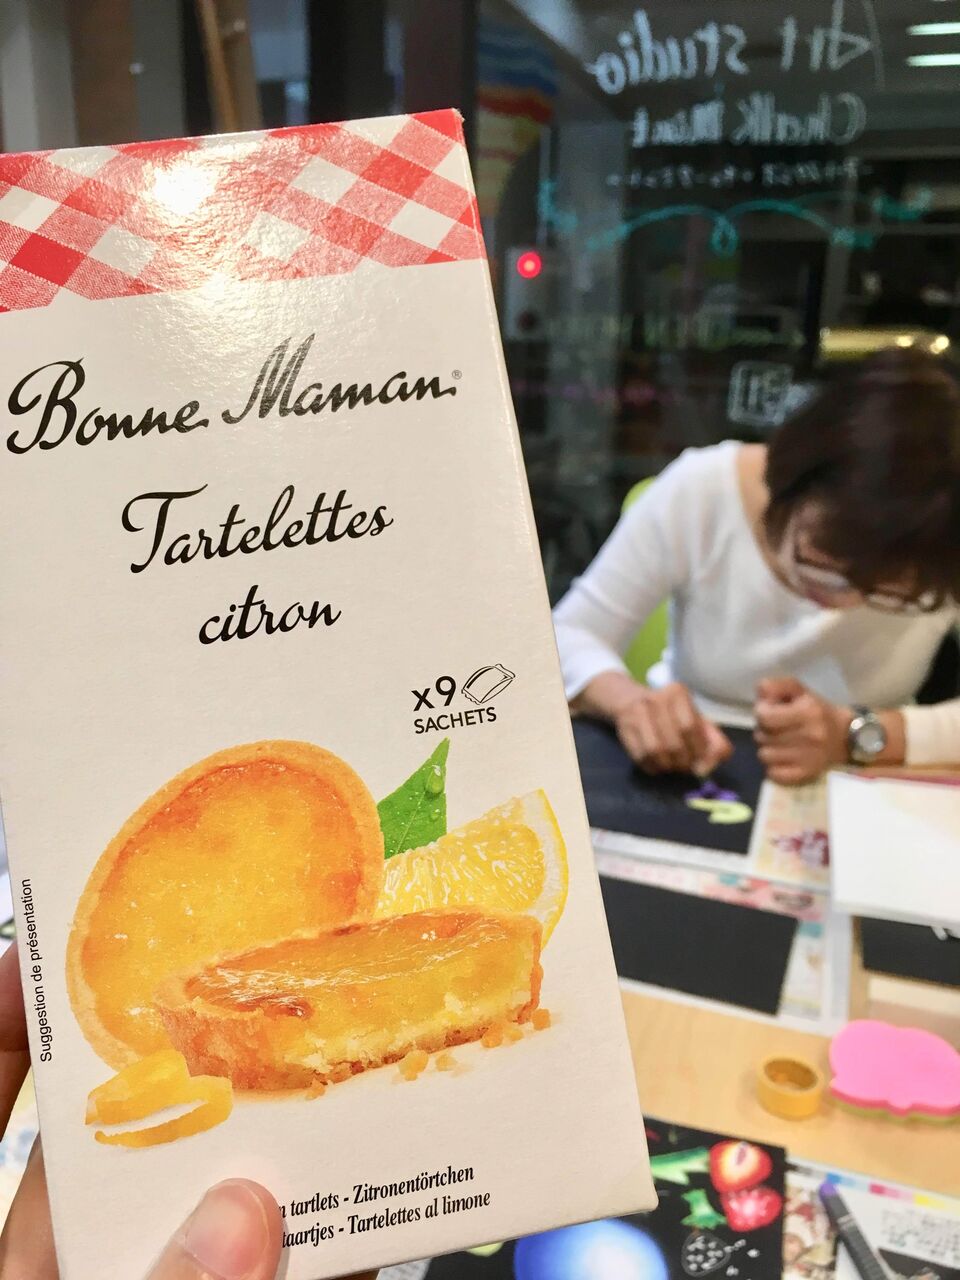 Art studio
Chalk mint
Bonne Maman®
Tartelettes
citron
x9
SACHETS
Suggestion de présentation
tartlets - Zitronentörtchen
taartjes - Tartelettes al limone